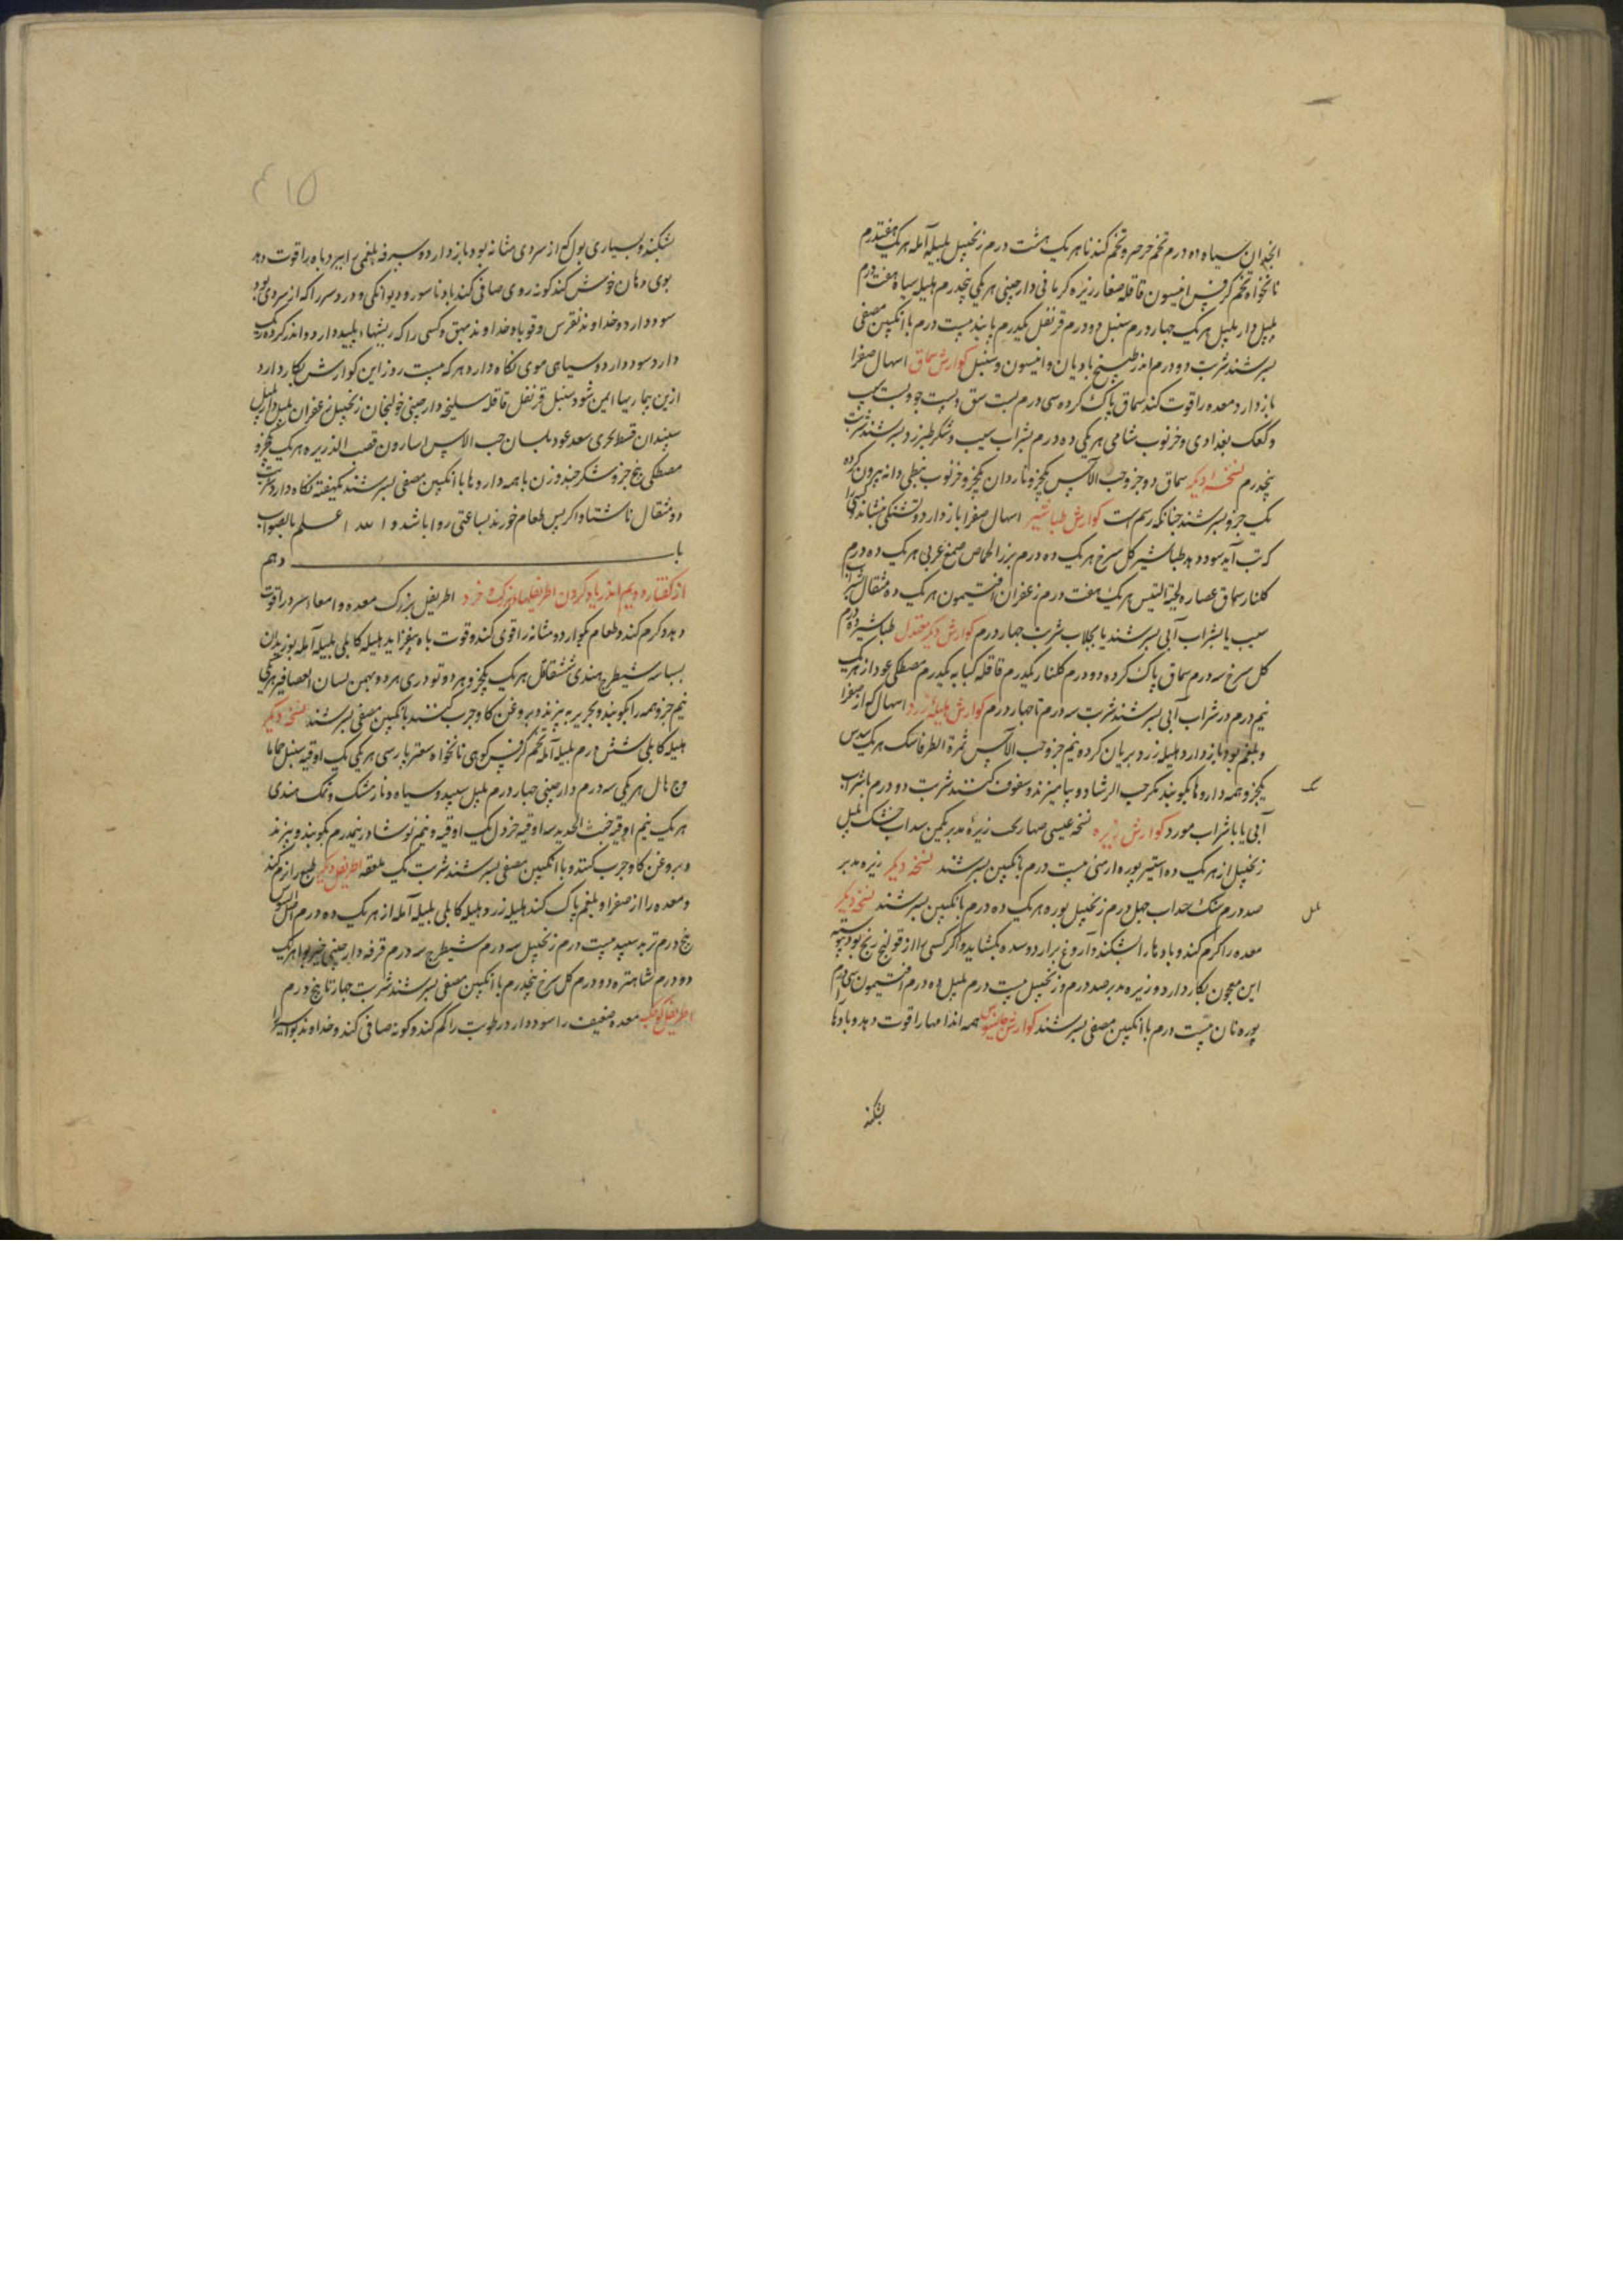 انجدان سیاه ده درم تخم جرجر و تخم کندنا هر یک هشت درم زنجبیل بلیله آمله هر یک هفتدرم
نانخواه تخم کرفس انیسون قاقله صغار زیره کرمانی دارچینی هر یکی پنجدرم هلیله سیاه هفت درم
پلپل دار پلپل هر یک چهار درم سنبل دو درم قرنفل یکدرم پانید بیست درم با انکبین مصفی
بسرشند شربت دو درم اندر طبیخ بادیان و انیسون و سنبل کوارش سماق اسهال صفرا
باز دارد معده را قوت کند سماق پاک کرده سی درم پست نبق و پست جو و پست سیب
و کعک بغدادی و خرنوب شامی هر یکی ده درم بشراب سیب و شکر طبرزد بسرشند شربت
پنجدرم نسخه دیکر سماق ده جزو حب الآس یکجزو ناردان یکجزو خرنوب نبطی دانه بیرون کرده
یک جزو بسرشند چنانکه رسم است کوارش طباشیر اسهال صفرا باز دارد و تشنکی بنشاند و کسی را
که تب آید سود دهد طباشیر کل سرخ هر یک ده درم بزر الحماض صمغ عربی هر یک ده درم
کلنار سماق عصاره لحیة التیس هر یک هفت درم زعفران افتیمون هر یک ده مثقال
سیب یا بشراب آبی بسرشند یا بجلاب شربت چهار درم کوارش دیکر معتدل طباشیر ده درم
کل سرخ سه درم سماق پاک کرده دو درم کلنار یکدرم قاقله کبابه یکدرم مصطکی عود از هر یک
نیم درم در شراب آبی بسرشند شربت سه درم تا چهار درم کوارش هلیله زرد اسهال که از صفرا
و بلغم بود باز دارد هلیله زرد بریان کرده نیم جزو حب الآس ثمرة الطرفا سک هر یک سدس
یکجزو همه داروها بکوبند مکر حب الرشاد و بیامیزند و سفوف کنند شربت دو درم با شراب
آبی یا با شراب مورد کوارش زیره نسخه عیسی صهاربخت زیره مدبر یکمن سداب خشک پلپل
زنجبیل از هر یک ده استیر بوره ارمنی بیست درم بانکبین بسرشند نسخه دیکر زیره مدبر
صد درم سداب چهل درم زنجبیل بوره هر یک ده درم بانکبین بسرشند نسخه دیکر
معده را کرم کند و بادها را بشکند و آروغ برآرد و سده بکشاید و اکر کسی را از قولنج رنج بود پیوسته
این معجون بکار دارد و زیره مدبر صد درم و زنجبیل بیست درم پلپل ده درم افتیمون سی درم
بوره نان بیست درم با انکبین مصفی بسرشند کوارش جالینوس همه اندامها را قوت دهد و بادها
بشکند
۴۱۵
بشکند و بسیاری بول که از سردی مثانه بود باز دارد و سرفه بلغمی را ببرد باه را قوت دهد
بوی دهان خوش کند کونه روی صافی کند باد ناسور و دیوانکی و درد سر را که از سردی بود
سود دارد و خداوند نقرس و قوبا و خداوند بهق و کسی را که ریشهاء پلید دارد و اندر کرده ریک
دارد سود دارد و سیاهی موی نکاه دارد هر که بیست روز این کوارش بکار دارد
ازین بیماریها ایمن شود سنبل قرنفل قاقله سلیخه دارچینی خولنجان زنجبیل زعفران پلپل دار پلپل
سپندان قسط بحری سعد عود بلسان حب الآس اسارون قصب الذریره هر یک یکجزو
مصطکی پنج جزو شکر چند وزن با همه داروها با انکبین مصفی بسرشند یکهفته نکاه دارد شربت
دو مثقال ناشتا و اکر پس طعام خورند بساعتی روا باشد و الله اعلم بالصواب
باب دهم
از کفتار دویم اندر یاد کردن اطریفلهاء بزرک و خرد اطریفل بزرک معده و امعاء سرد را قوت
دهد و کرم کند و طعام بکوارد و مثانه را قوی کند و قوت باه بیفزاید هلیله کابلی بلیله آمله بوزیدان
بسباسه شیطرج هندی شقاقل هر یک یکجزو هر دو تودری هر دو بهمن لسان العصافیر هر یکی
نیم جزو همه را بکوبند و بحریر به بیزند و بروغن کاو چرب کنند بانکبین مصفی بسرشند نسخه دیکر
هلیله کابلی شش درم بلیله آمله تخم کرفس کوهی نانخواه سعتر پارسی هر یکی یک اوقیه سنبل حماما
وج هال هر یکی سه درم دارچینی چهار درم پلپل سپید و سیاه و نارمشک و نمک هندی
هر یک نیم اوقیه خبث الحدید سه اوقیه خردل یک اوقیه و نیم نوشادر نیمدرم بکوبند و ببیزند
و بروغن کاو چرب کنند و با انکبین مصفی بسرشند شربت یک ملعقه اطریفل دیکر طبع را نرم کند
و معده را از صفرا و بلغم پاک کند هلیله زرد و هلیله کابلی بلیله آمله از هر یک ده درم
پنج درم تربد سپید بیست درم زنجبیل سه درم شیطرج سه درم قرفه دارچینی خیربوا هر یک
دو درم شاهتره دو درم کل سرخ پنجدرم با انکبین مصفی بسرشند شربت چهار تا پنج درم
اطریفل کوچک معده ضعیف را سود دارد رطوبت را کم کند و کونه صافی کند و خداوند بواسیر را